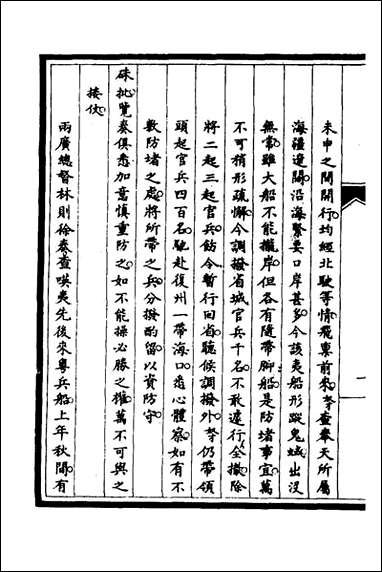 未申之間開行均經北駛等情飛稟前來奴才查奉天所屬
海疆遼闊沿海緊要口岸甚多今該夷船形蹤鬼蜮出沒
無常雖大船不能攏岸但各有隨帶脚船是防堵事宜萬
不可稍形疏懈今調撥省城官兵千名不敢遽行全撤除
將二起三起官兵飭令暫行回省聽候調撥外奴才仍帶領
頭起官兵四百名馳赴復州一帶海口悉心體察如有不
敷防堵之處將所帶之兵分撥酌留以資防守
硃批覽奏俱悉加意慎重防之如不能操必勝之權萬不可與之
接仗
兩廣總督林則徐奏查𠸄夷先後來粵兵船上年秋間有
一